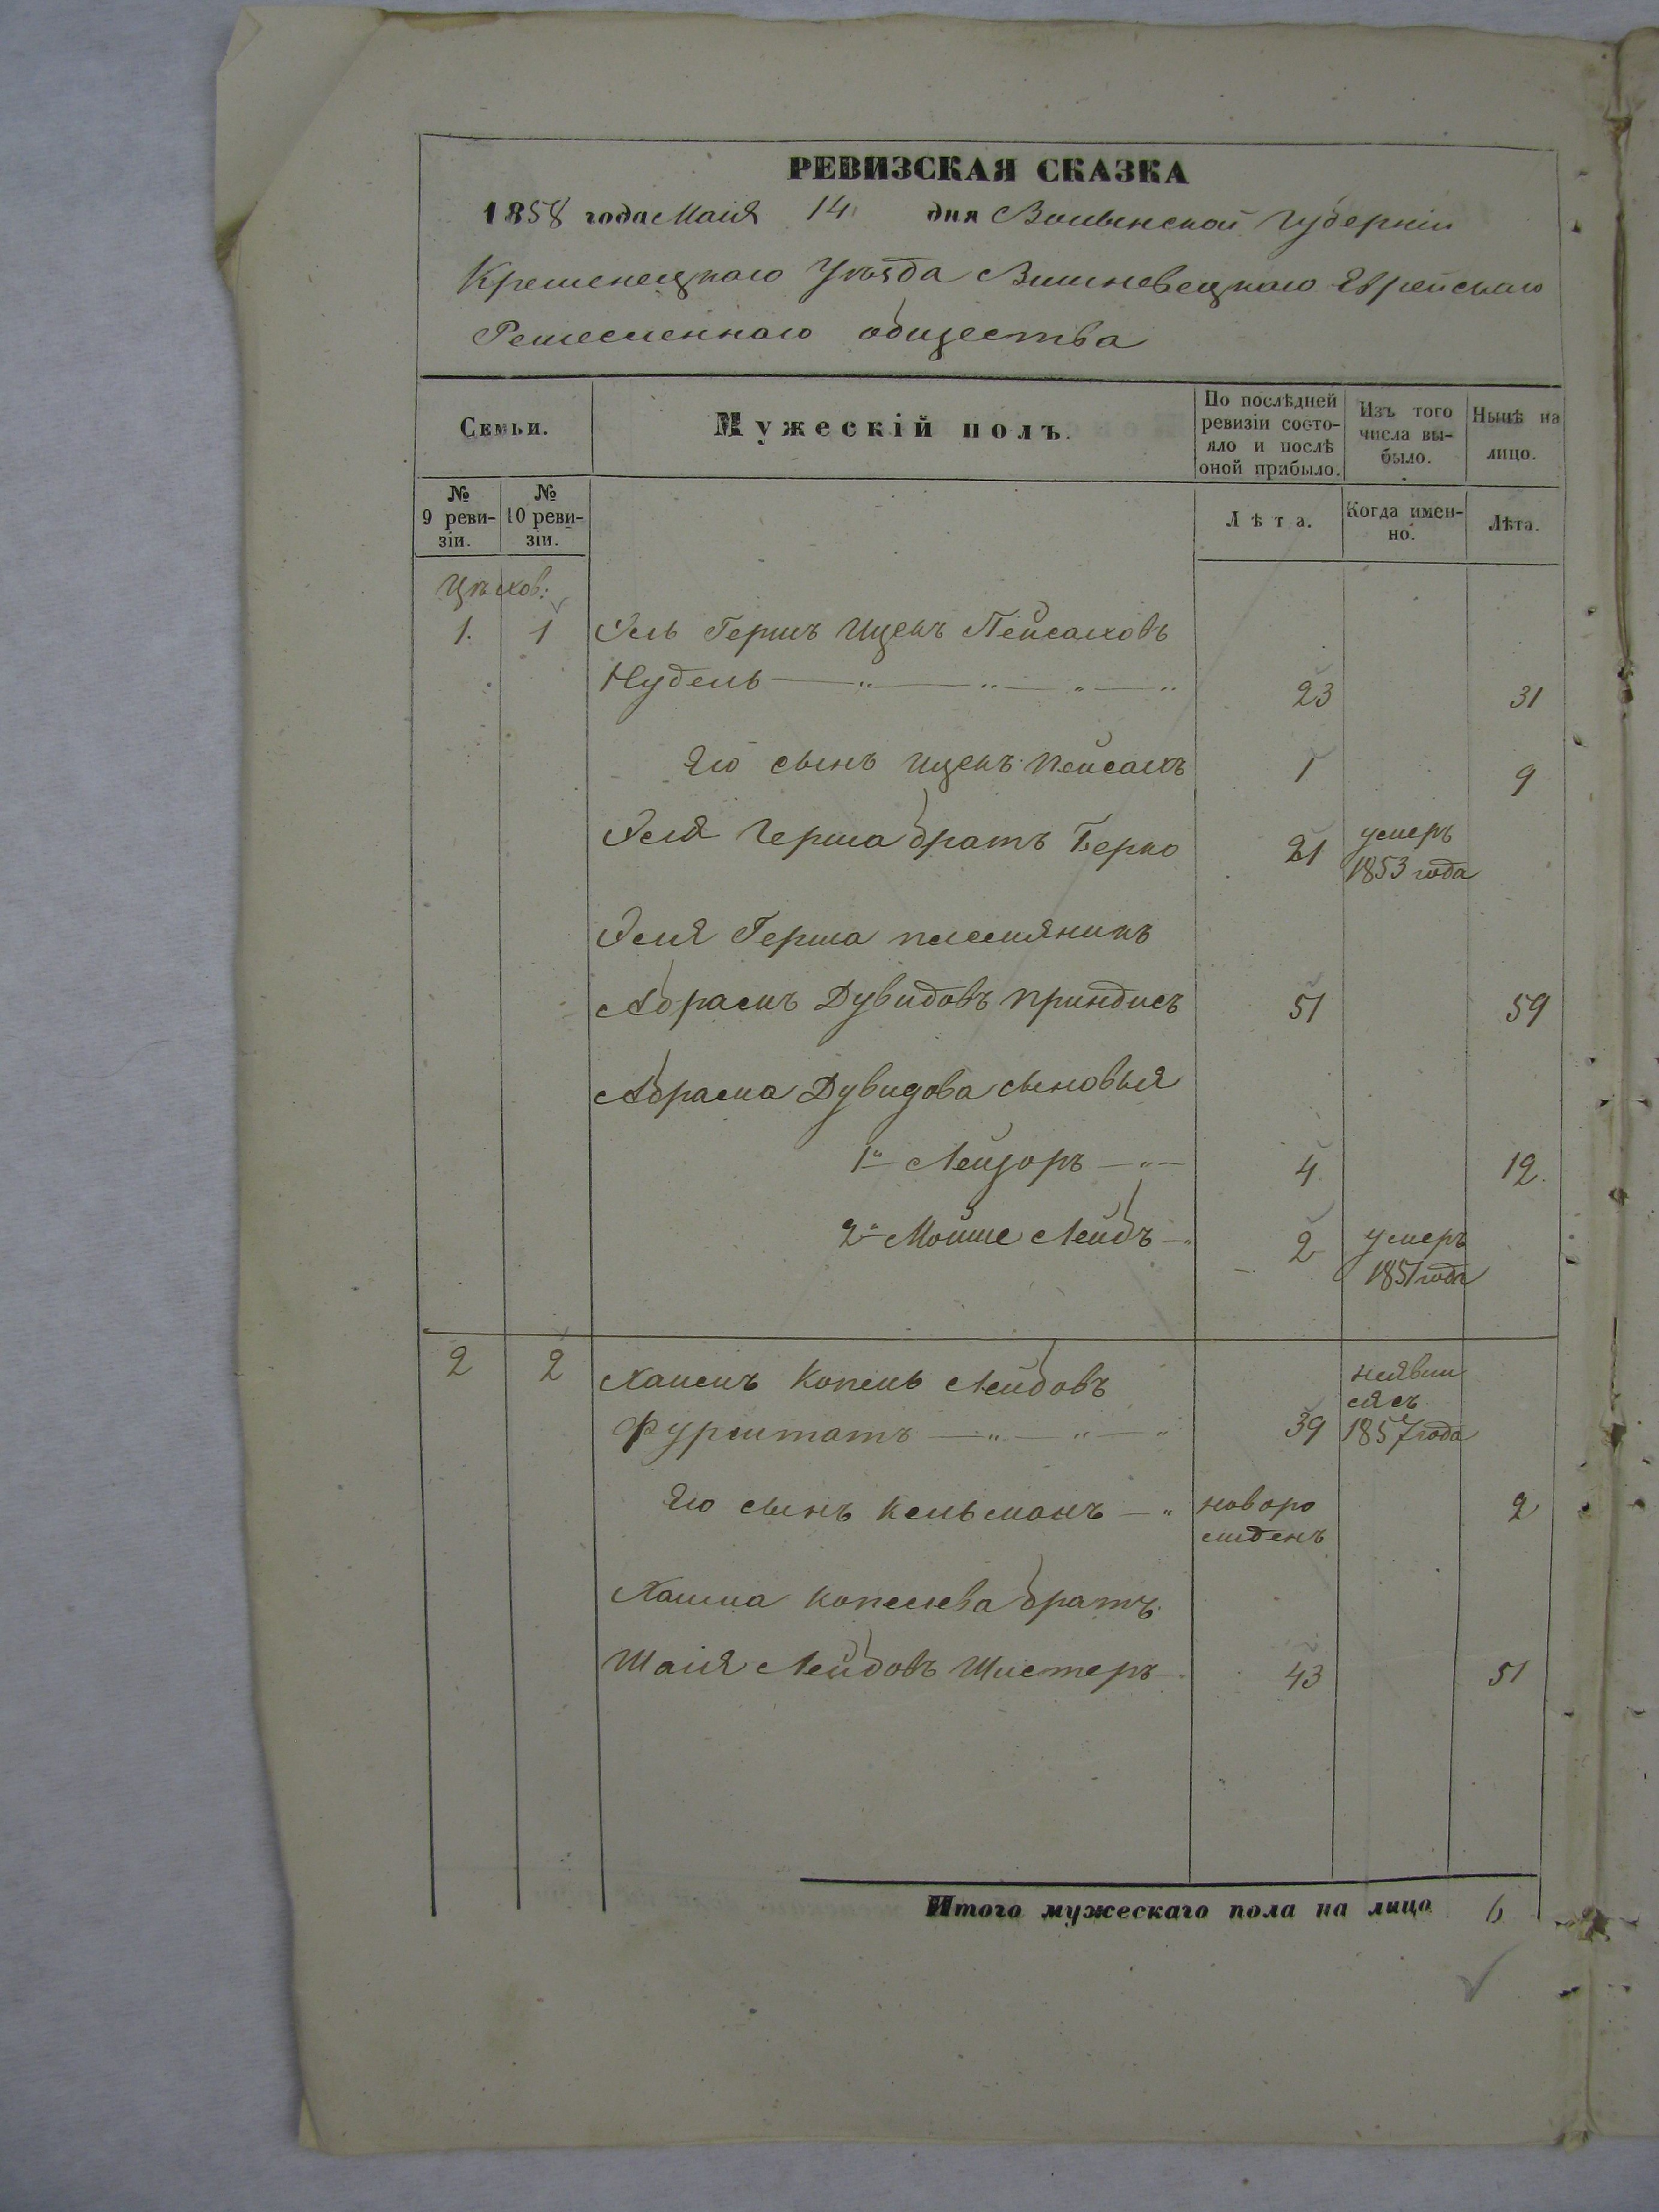 РЕВИЗСКАЯ СКАЗКА
1858 года Маія 14 дня Волынской Губерніи
Кременецкаго Уѣзда Вишневецкаго Еврейскаго
Ремесленнаго общества
Семьи.
Мужескій полъ.
По послѣдней ревизіи состо-
яло и послѣ оной прибыло.
Изъ того числа вы-
было.
Нынѣ на лицо.
№ 9 реви-
зіи.
№ 10 реви-
зіи.
Лѣта.
Когда имен-
но.
Лѣта.
Цѣхов:
1. 1 Іель Гершъ Ицекъ Пейсаховъ
Нудель 23 31
Его сынъ Ицекъ Пейсахъ 1 9
Іеля Герша братъ Берко 21 умеръ
1853 года
Іеля Герша племяникъ
Абрамъ Дувидовъ Приндисъ 51 59
Абрама Дувидова сыновья
1й Лейзоръ 4 12.
2й Мойше Лейбъ 2 умеръ
1851 года
2 2 Хаимъ Копель Лейбовъ неявил
ся съ
Фурштатъ 39 1857 года
Его сынъ Кельманъ новоро
жденъ 2
Хаима Копелева братъ
Шаія Лейбовъ Шистеръ 43 51
Итого мужескаго пола на лицо 6